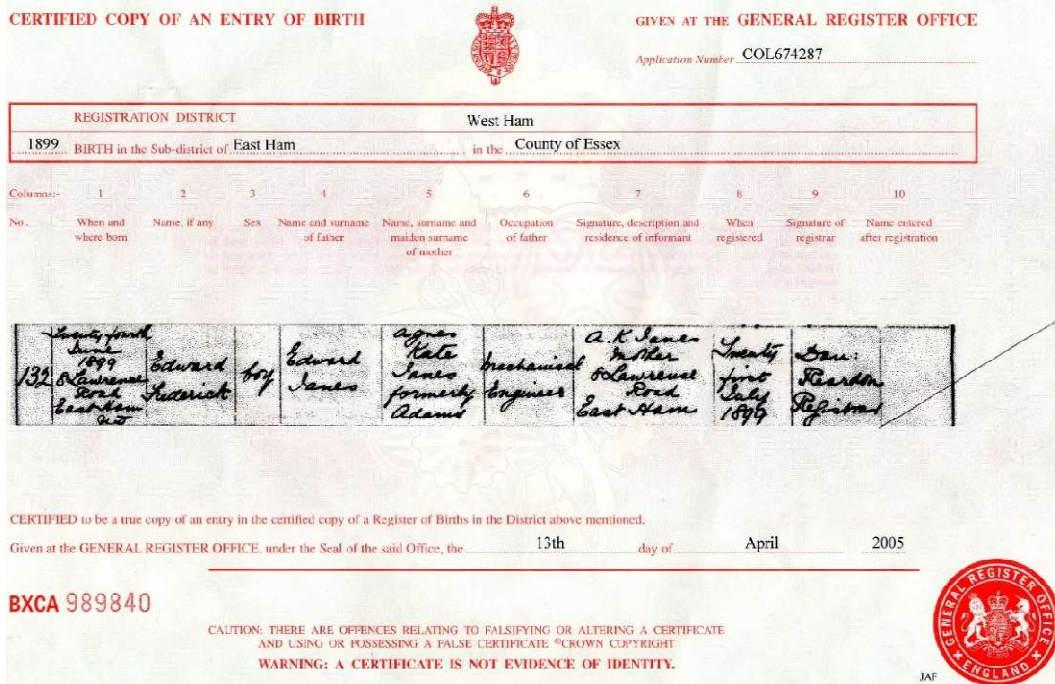 CERTIFIED COPY OF AN ENTRY OF BIRTH
GIVEN AT THE GENERAL REGISTER OFFICE
Application Number COL674287
REGISTRATION DISTRICT West Ham
1899 BIRTH in the Sub-district of East Ham in the County of Essex
Columns:- 1 2 3 4 5 6 7 8 9 10
No. When and Name, if any Sex Name and surname Name, surname and Occupation Signature, description and When Signature of Name entered
where born of father maiden surname of father residence of informant registered registrar after registration
of mother
132
Twenty fourth
June
1899
8 Lawrence
Road
East Ham
Edward
Frederick
boy
Edward
Janes
Agnes
Kate
Janes
formerly
Adams
Mechanical
Engineer
A. K Janes
Mother
8 Lawrence
Road
East Ham
Twenty
first
July
1899
Reardon
Registrar
CERTIFIED to be a true copy of an entry in the certified copy of a Register of Births in the District above mentioned.
Given at the GENERAL REGISTER OFFICE, under the Seal of the said Office, the 13th day of April 2005
BXCA 989840
CAUTION: THERE ARE OFFENCES RELATING TO FALSIFYING OR ALTERING A CERTIFICATE
AND USING OR POSSESSING A FALSE CERTIFICATE ©CROWN COPYRIGHT
WARNING: A CERTIFICATE IS NOT EVIDENCE OF IDENTITY.
GENERAL REGISTER OFFICE
ENGLAND
JAF